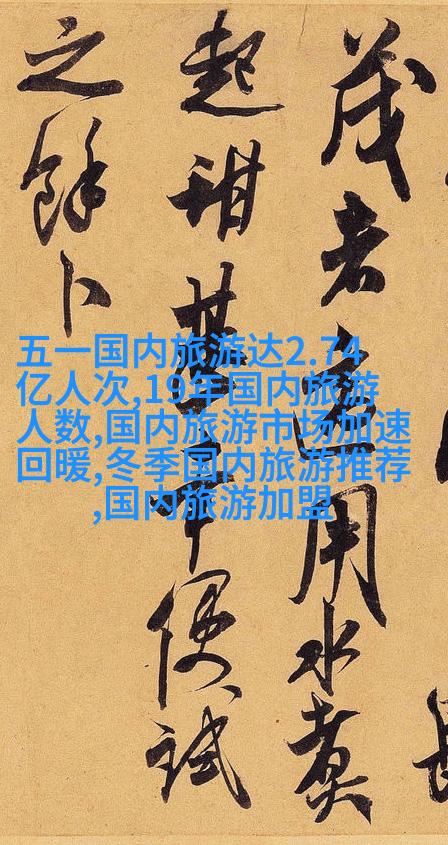 五一国内旅游达2.74
亿人次,19年国内旅游
人数,国内旅游市场加速
回暖,冬季国内旅游推荐
,国内旅游加盟
茂者用水煮
起甜甚便試
之餘卜